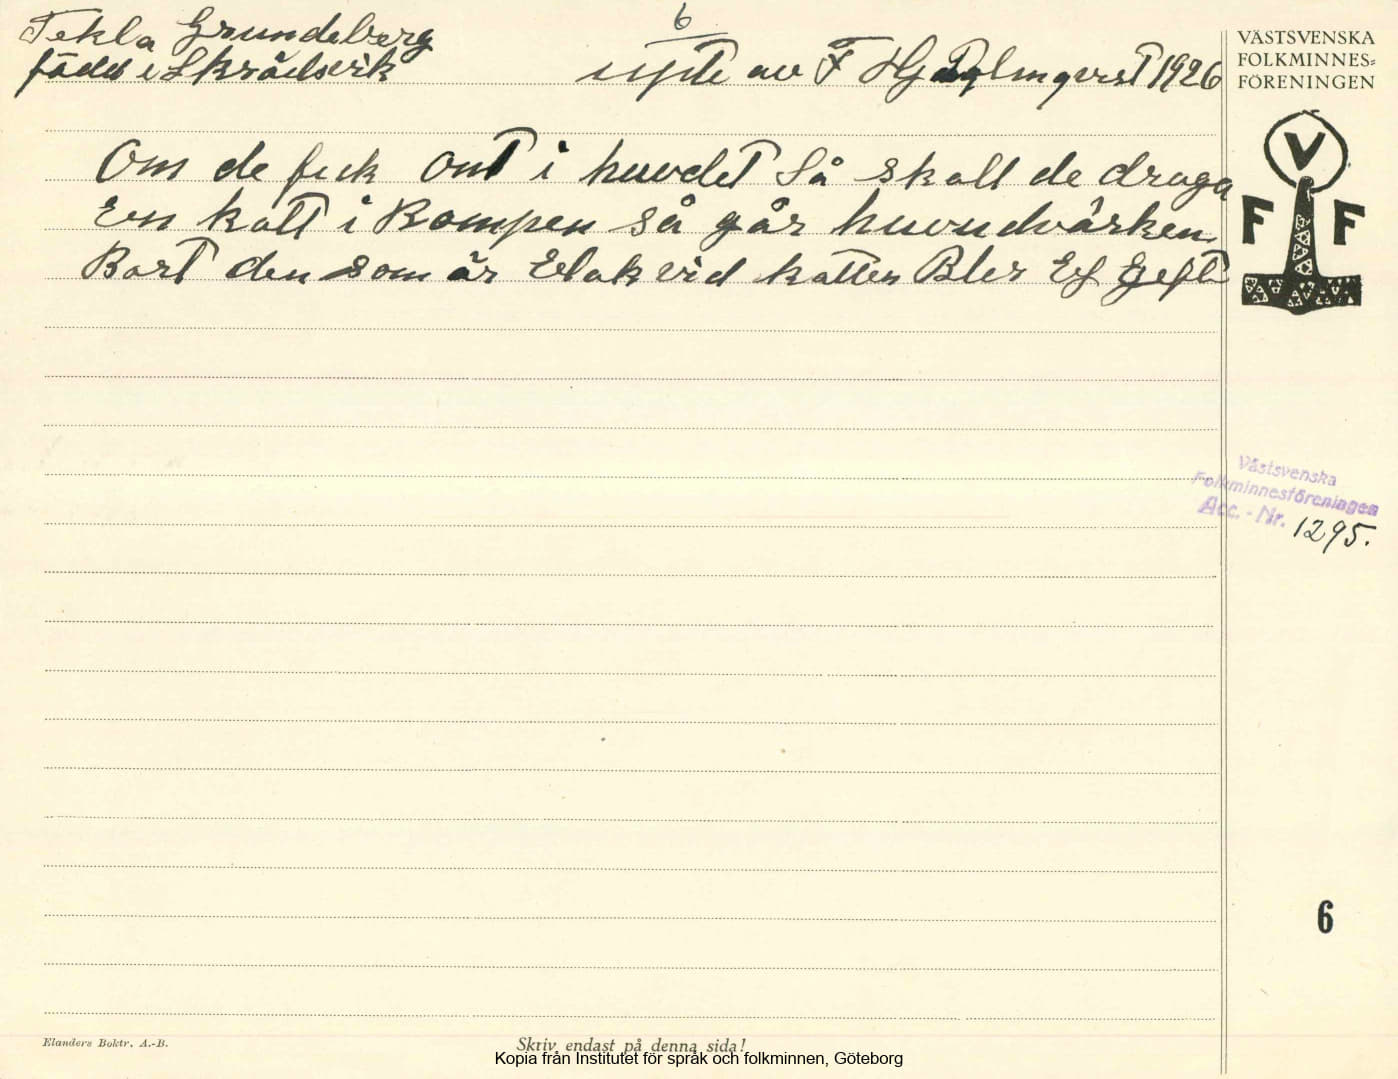 6
Tekla Grundeberg
född i Skrädsvik
uppt av F Hj Dalmqvist 1926
VÄSTSVENSKA
FOLKMINNES=
FÖRENINGEN
V
F F
Om de fick ont i huvdet så skall de draga
En katt i Rompen så går huvudvärken
Bort den som är Elak vid katter Bler Ej Geft
Västsvenska
Folkminnesföreningen
Acc. - Nr. 1295.
6
Elanders Boktr. A.-B.
Skriv endast på denna sida!
Kopia från Institutet för språk och folkminnen, Göteborg